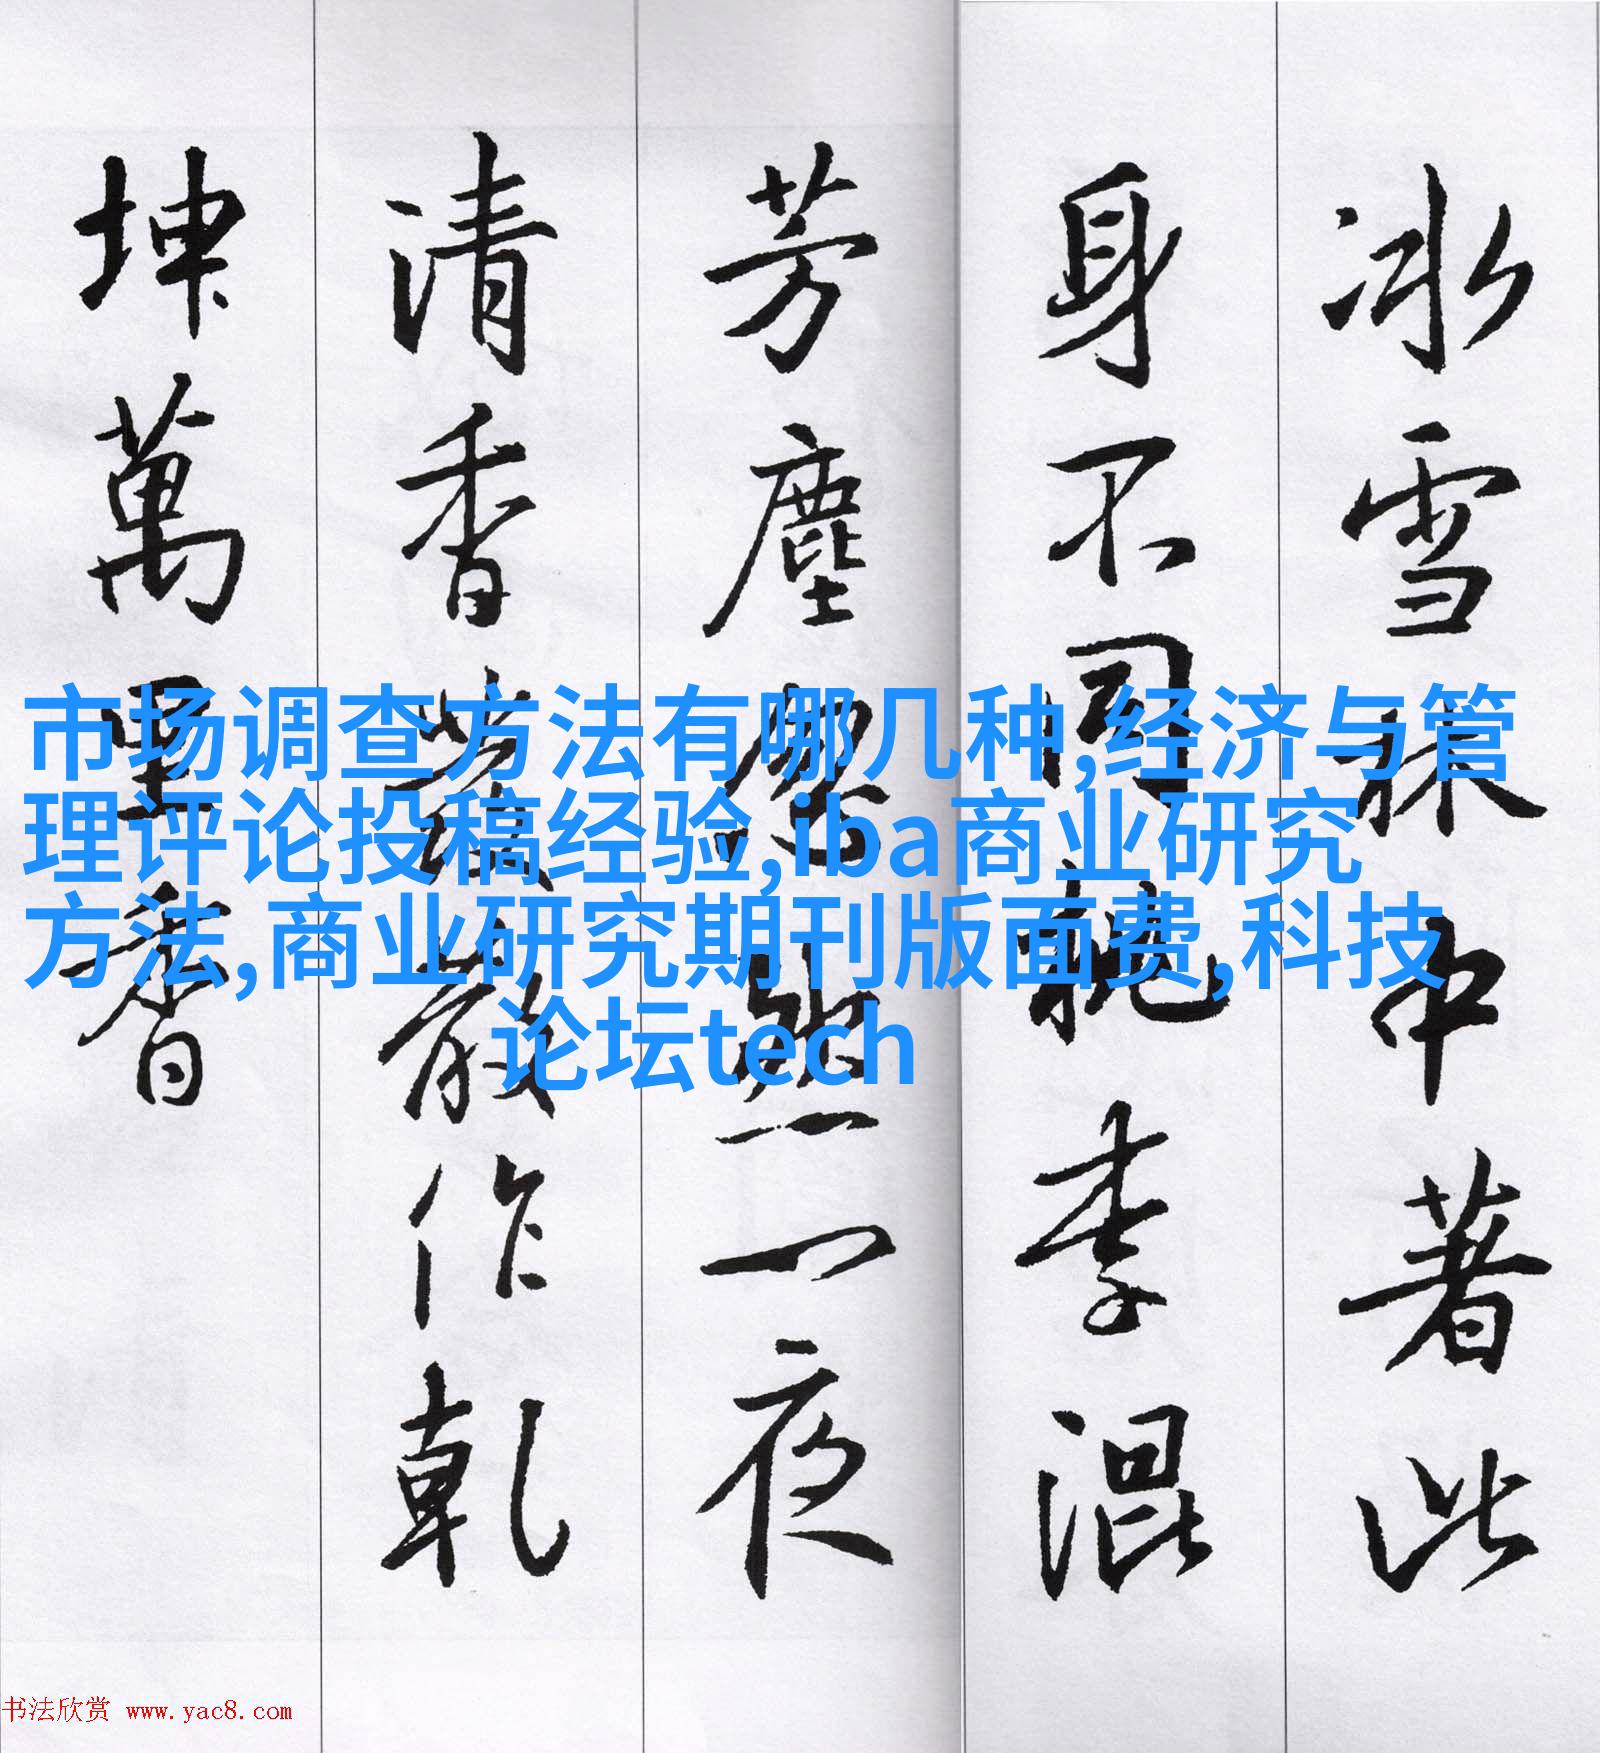 冰雪林中著此
身不同桃李混
芳塵忽然一夜
清香發散作乾
坤萬里香
市场调查方法有哪几种,经济与管
理评论投稿经验,iba商业研究
方法,商业研究期刊版面费,科技
论坛tech
书法欣赏 www.yac8.com